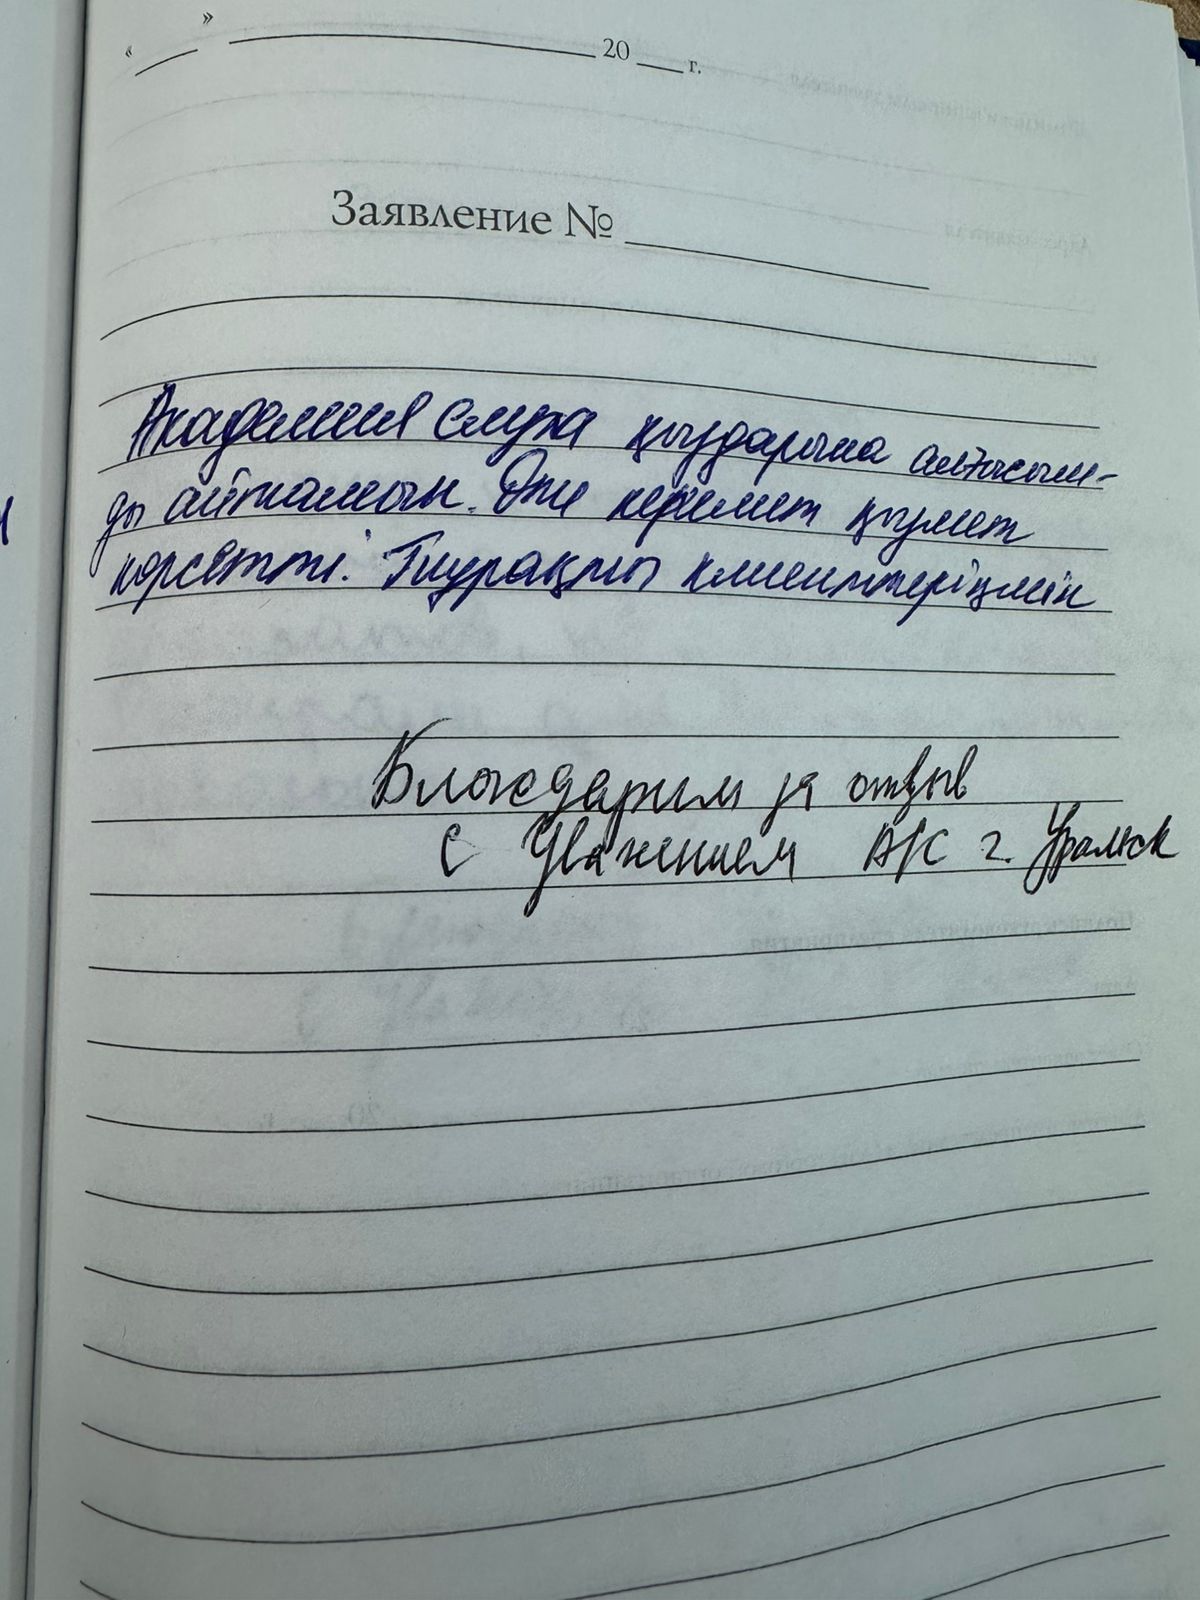 « ___ » ______________ 20 ___ г.
Заявление № ______________
Академия Слуха қыздарына алғысым-
ды айтамын. Өте керемет қызмет
көрсетті. Тұрақты клиенттеріңмін
Благодарим за отзыв
С Уважением АС г. Уральск